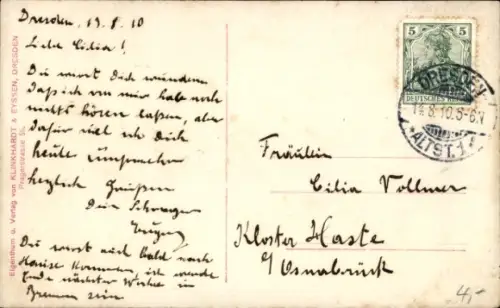 Dresden, 19.8.10
Liebe Cilia!
Du wirst Dich wundern
daß ich von mir habe noch
nichts hören laßen, aber
dafür will ich Dich
heute umsomehr
herzlich Grüßen
Dein Schwager
Du wirst auch bald nach
Hause kommen, ich werde
Ende nächster Woche in
Bremen sein
Eigenthum u. Verlag von KLINKHARDT & EYSSEN, DRESDEN
Pragerstrasse
5 5
DEUTSCHES REICH
DRESDEN
8.10.5-6N
*ALTST.1*
Fräulein
Cilia Vollmer
Kloster Haste
b/ Osnabrück
4,-